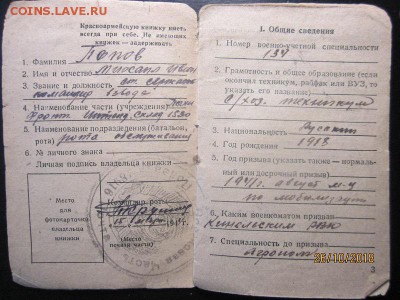 COINS.LAVE.RU
Красноармейскую книжку иметь
всегда при себе. Не имеющих
книжек — задерживать
1. Фамилия Попов
2. Имя и отчество Михаил
3. Звание и должность ст. сержант
командир
4. Наименование части (учреждения)
склад
5. Наименование подразделения (батальон,
рота) рота обслуживания
6. № личного знака
Личная подпись владельца книжки
Место
для
фотокарточки
владельца
книжки
роты
15
(Место
печати части)
I. Общие сведения
1. Номер военно-учетной специальности
134
2. Грамотность и общее образование (если
окончил техникум, рабфак или ВУЗ, то
указать его название)
с/хоз. техникум
3. Национальность Русский
4. Год рождения 1913
5. Год призыва (указать — нормаль-
ный или досрочный призыв)
1941 г. август м-ц
по мобилизации
6. Каким военкоматом призван
Кинельским РВК
7. Специальность до призыва
Агроном
3
26/10/2013